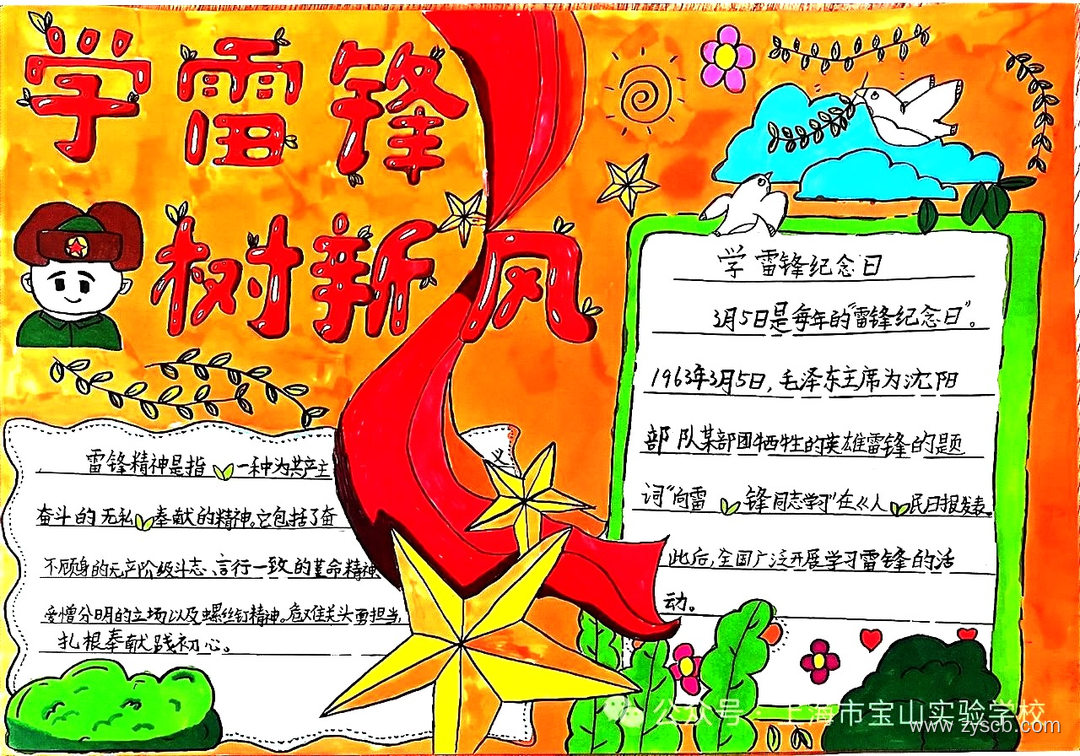 学雷锋
树新风
雷锋精神是指一种为共产主义
奋斗的无私奉献的精神。它包括了奋
不顾身的无产阶级斗志、言行一致的革命精神
爱憎分明的立场以及螺丝钉精神。危难关头勇担当,
扎根奉献践初心。
学雷锋纪念日
3月5日是每年的"雷锋纪念日"。
1963年3月5日,毛泽东主席为沈阳
部队某部因牺牲的英雄雷锋的题
词"向雷锋同志学习"在《人民日报发表。
此后,全国广泛开展学习雷锋的活
动。
公众号·上海市宝山实验学校
www.zyscb.com